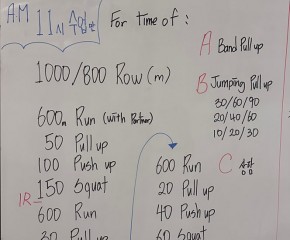 AM
For Time of :
1000/800 Row (m)
600m Run (with Partner)
50 Pull up
100 Push up
1R
150 Squat
600 Run
30 Pull up
600 Run
20 Pull up
40 Push up
60 Squat
A Band Pull up
B Jumping Pull up
30/60/90
20/40/60
10/20/30
C